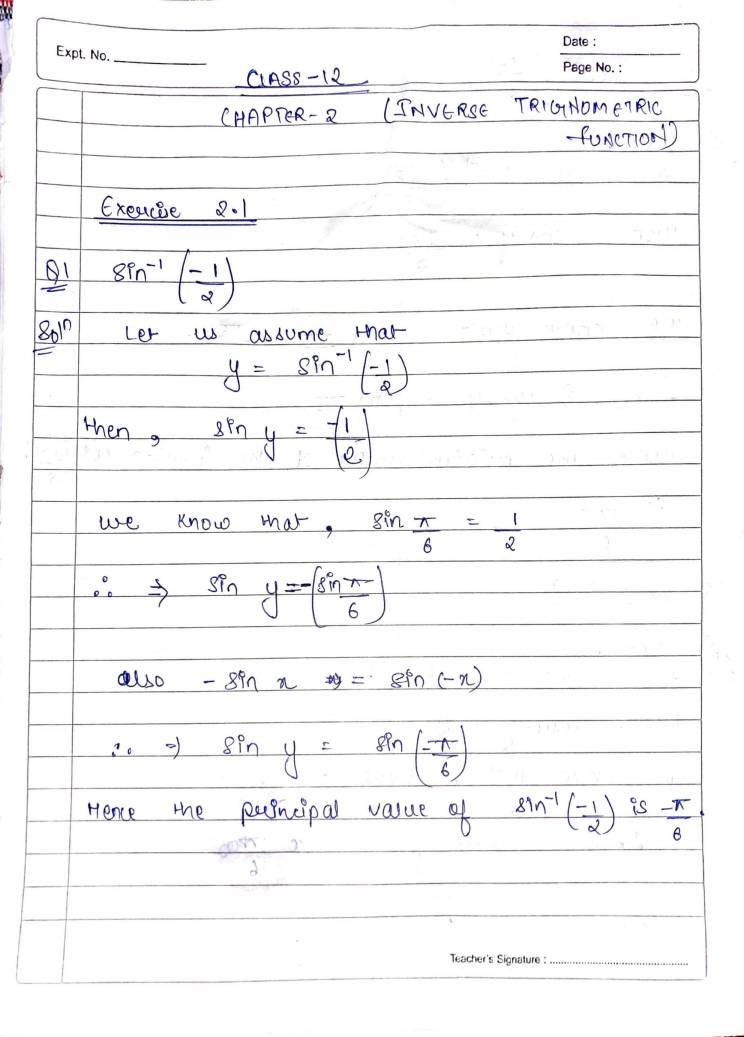 Expt. No.
Date :
Page No. :
CLASS-12
CHAPTER-2 (INVERSE TRIGNOMETRIC
FUNCTION)
Exercise 2.1
Q1 sin⁻¹ (-1/2)
Solⁿ Let us assume that
y = sin⁻¹ (-1/2)
then, sin y = -(1/2)
we know that, sin π/6 = 1/2
∴ ⇒ sin y = -(sin π/6)
also - sin x = sin (-x)
∴ ⇒ sin y = sin (-π/6)
Hence the principal value of sin⁻¹ (-1/2) is -π/6.
Teacher's Signature :